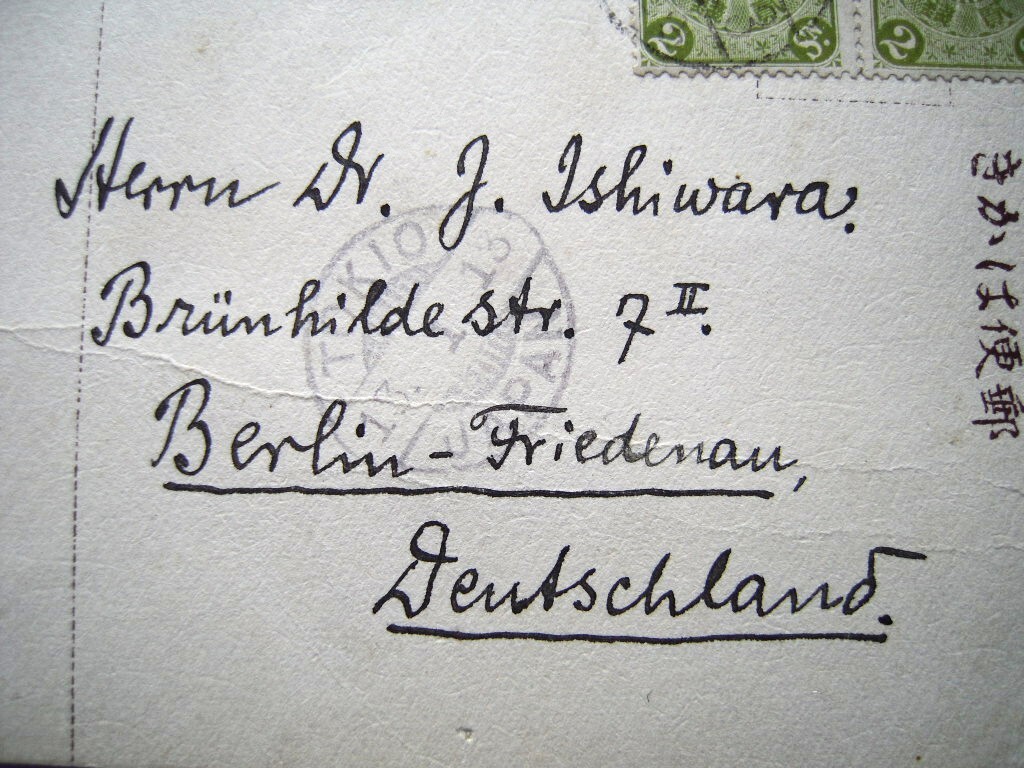 2 Sn. 2
Herrn Dr. J. Ishiwara.
Brünhildestr. 7 II.
Berlin-Friedenau,
Deutschland.
きかは便郵
TOKIO
JAPAN